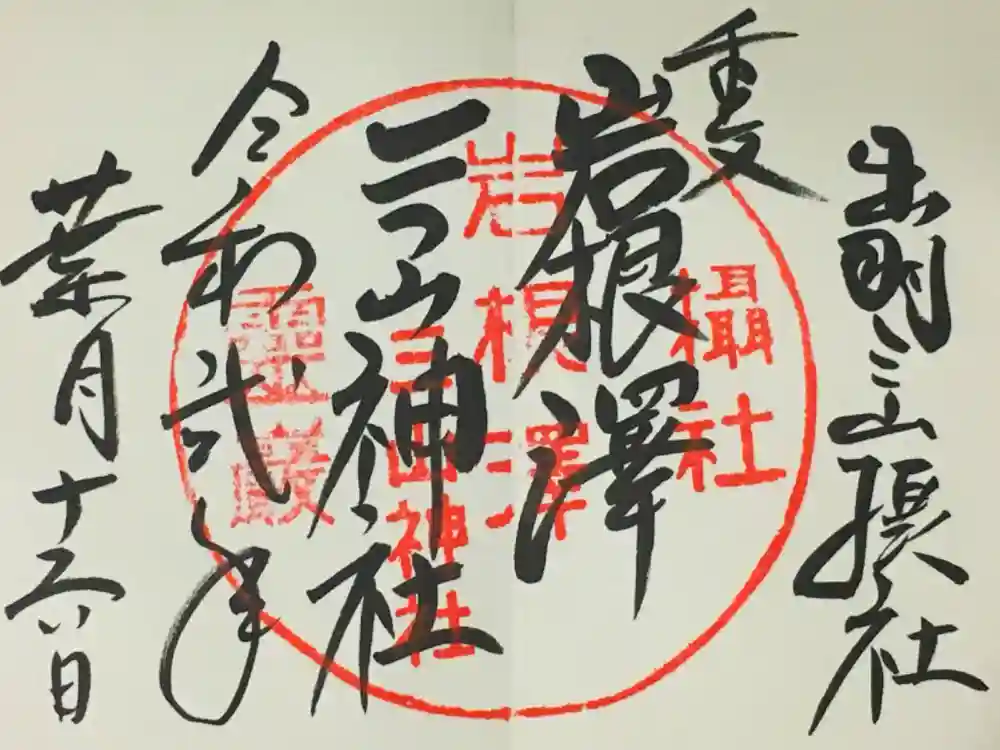 出羽三山摂社
重文
岩根澤
三山神社
令和弐年
葉月十六日
攝社
岩根澤
三山神社